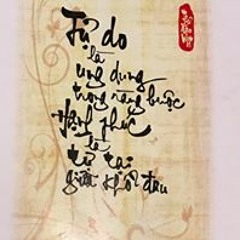 Tự do
là
ung dung
trong ràng buộc
Hạnh phúc
là
tự tại
giữa khổ đau